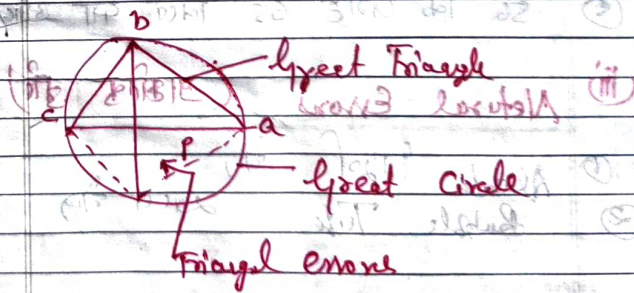 b
Great Triangle
c
a
P
Great Circle
Triangel errors